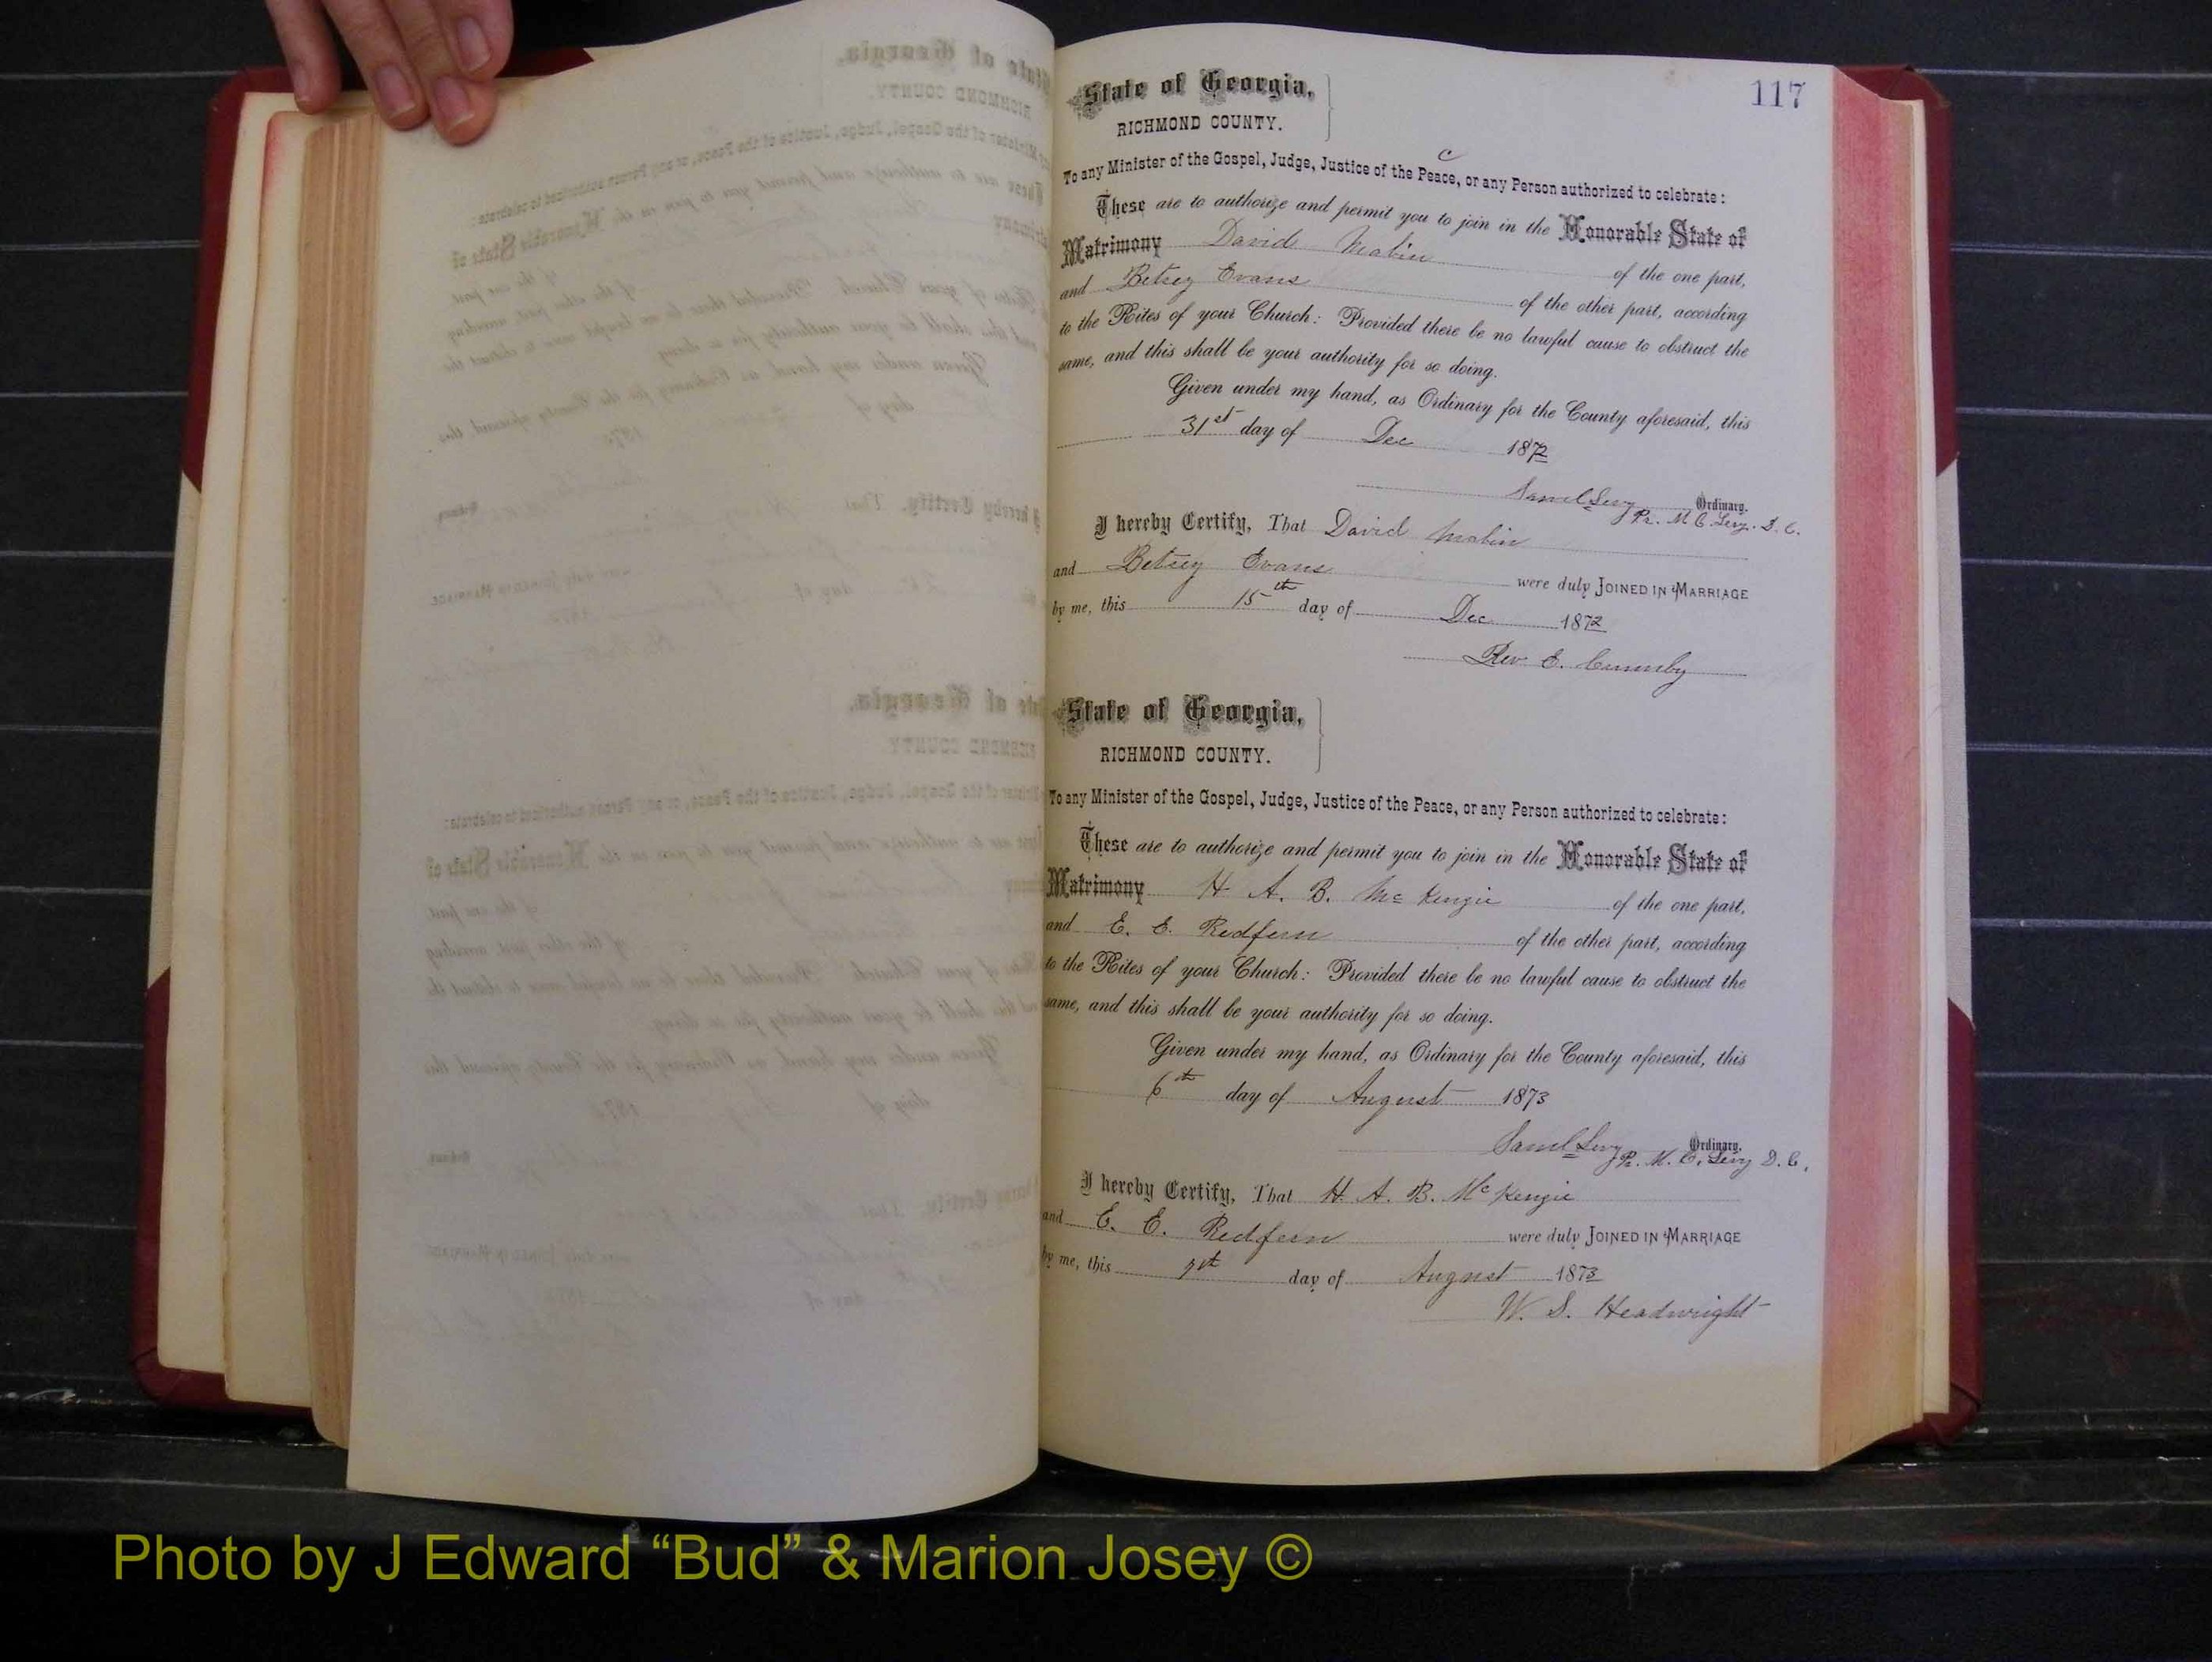 117
State of Georgia,
RICHMOND COUNTY.
c
To any Minister of the Gospel, Judge, Justice of the Peace, or any Person authorized to celebrate:
These are to authorize and permit you to join in the Honorable State of
Matrimony David Mabin of the one part,
and Betsey Evans of the other part, according
to the Rites of your Church: Provided there be no lawful cause to obstruct the
same, and this shall be your authority for so doing.
Given under my hand, as Ordinary for the County aforesaid, this
31st day of Dec 1872
Samel Levy Ordinary.
Pr. M C. Levy. D. C.
I hereby Certify, That David Mabin
and Betsey Evans were duly JOINED IN MARRIAGE
by me, this 15th day of Dec 1872
Rev E. Cummby
State of Georgia,
RICHMOND COUNTY.
To any Minister of the Gospel, Judge, Justice of the Peace, or any Person authorized to celebrate:
These are to authorize and permit you to join in the Honorable State of
Matrimony H A. B. McKenzie of the one part,
and E. E. Redfern of the other part, according
to the Rites of your Church: Provided there be no lawful cause to obstruct the
same, and this shall be your authority for so doing.
Given under my hand, as Ordinary for the County aforesaid, this
6th day of August 1873
Samel Levy Ordinary.
Pr. M. C. Levy D. C.
I hereby Certify, That H. A. B. McKenzie
and E. E. Redfern were duly JOINED IN MARRIAGE
by me, this day of August 1873
W. S. Headwright
Photo by J Edward “Bud” & Marion Josey ©